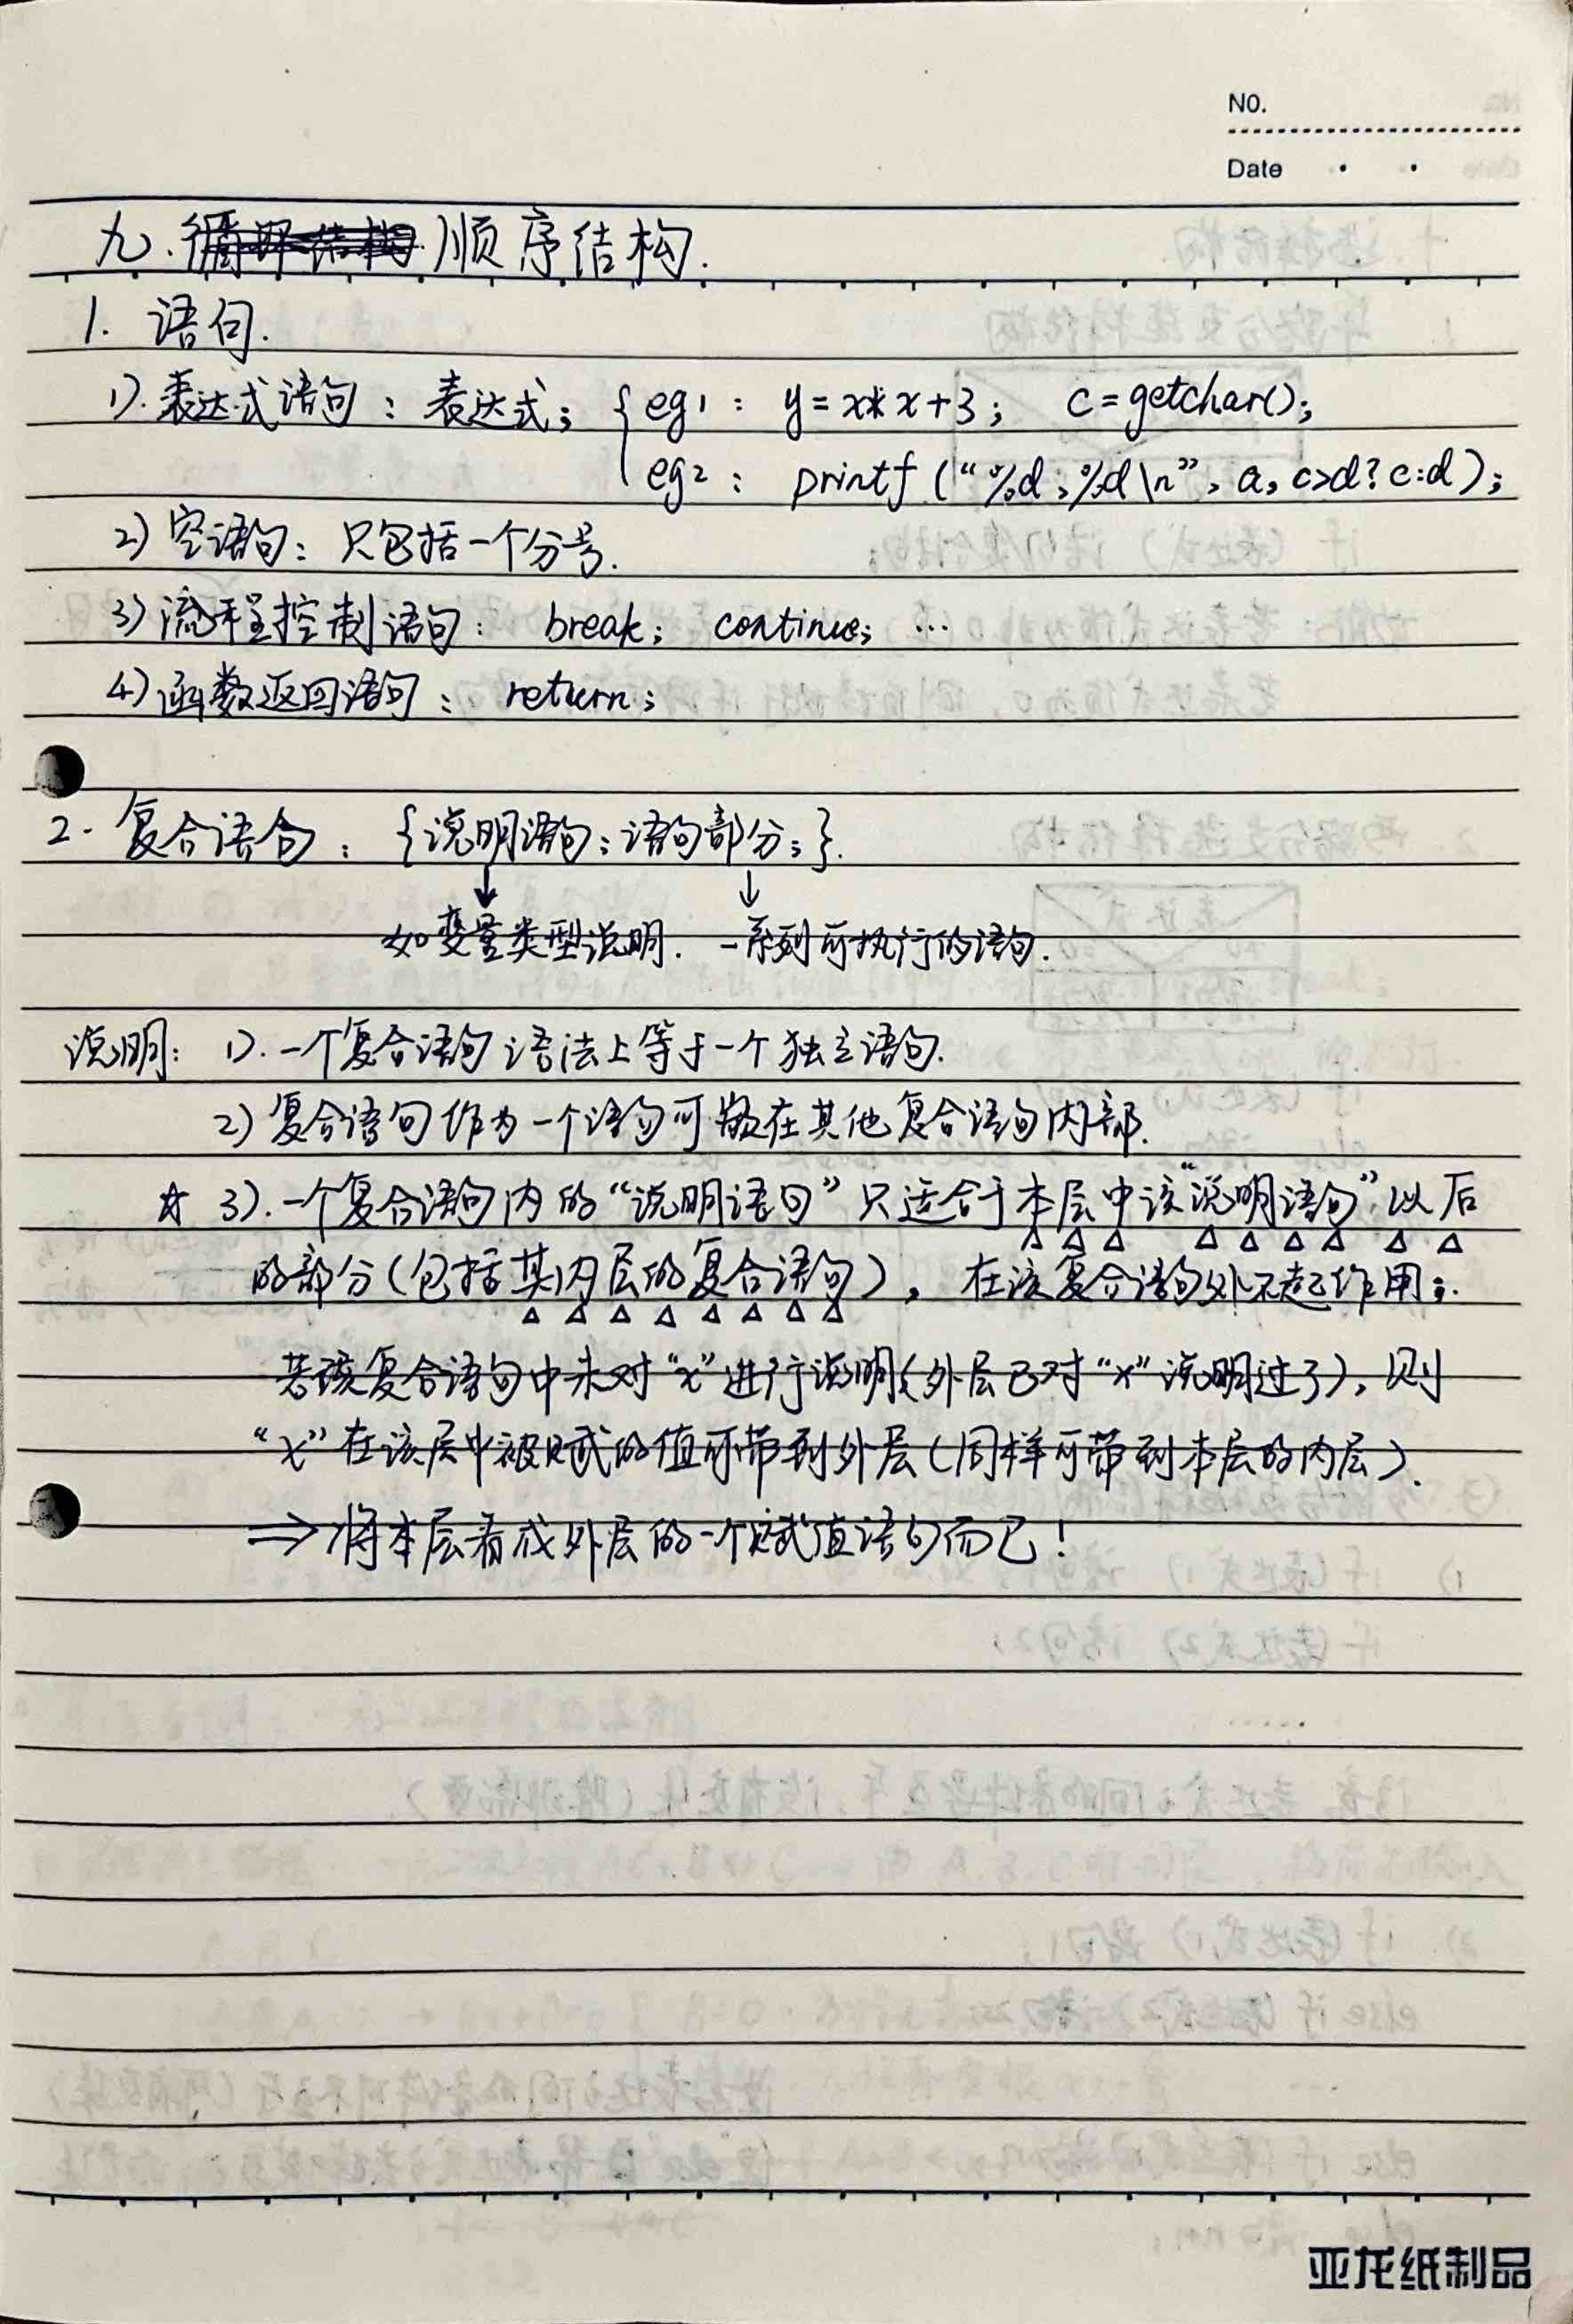 NO.
Date
九.循环结构 顺序结构.
1. 语句.
1).表达式语句：表达式；{ eg1：y=x*x+3； c=getchar()；
eg2：printf（“%d；%d\n”，a，c>d？c:d）；
2) 空语句：只包括一个分号.
3) 流程控制语句：break； continue； …
4) 函数返回语句：return；
2. 复合语句：{说明语句；语句部分；}.
↓ ↓
如变量类型说明. 一系列可执行的语句.
说明：1).一个复合语句 语法上等于一个独立语句.
2) 复合语句作为一个语句可放在其他复合语句内部.
☆ 3).一个复合语句内的“说明语句”只适合于本层中该“说明语句”以后
的部分（包括其内层的复合语句），在该复合语句外不起作用；.
若该复合语句中未对“x”进行说明（外层已对“x”说明过了），则
“x”在该层中被赋的值可带到外层（同样可带到本层的内层）.
⇒将本层看成外层的一个赋值语句而已！
亚龙纸制品